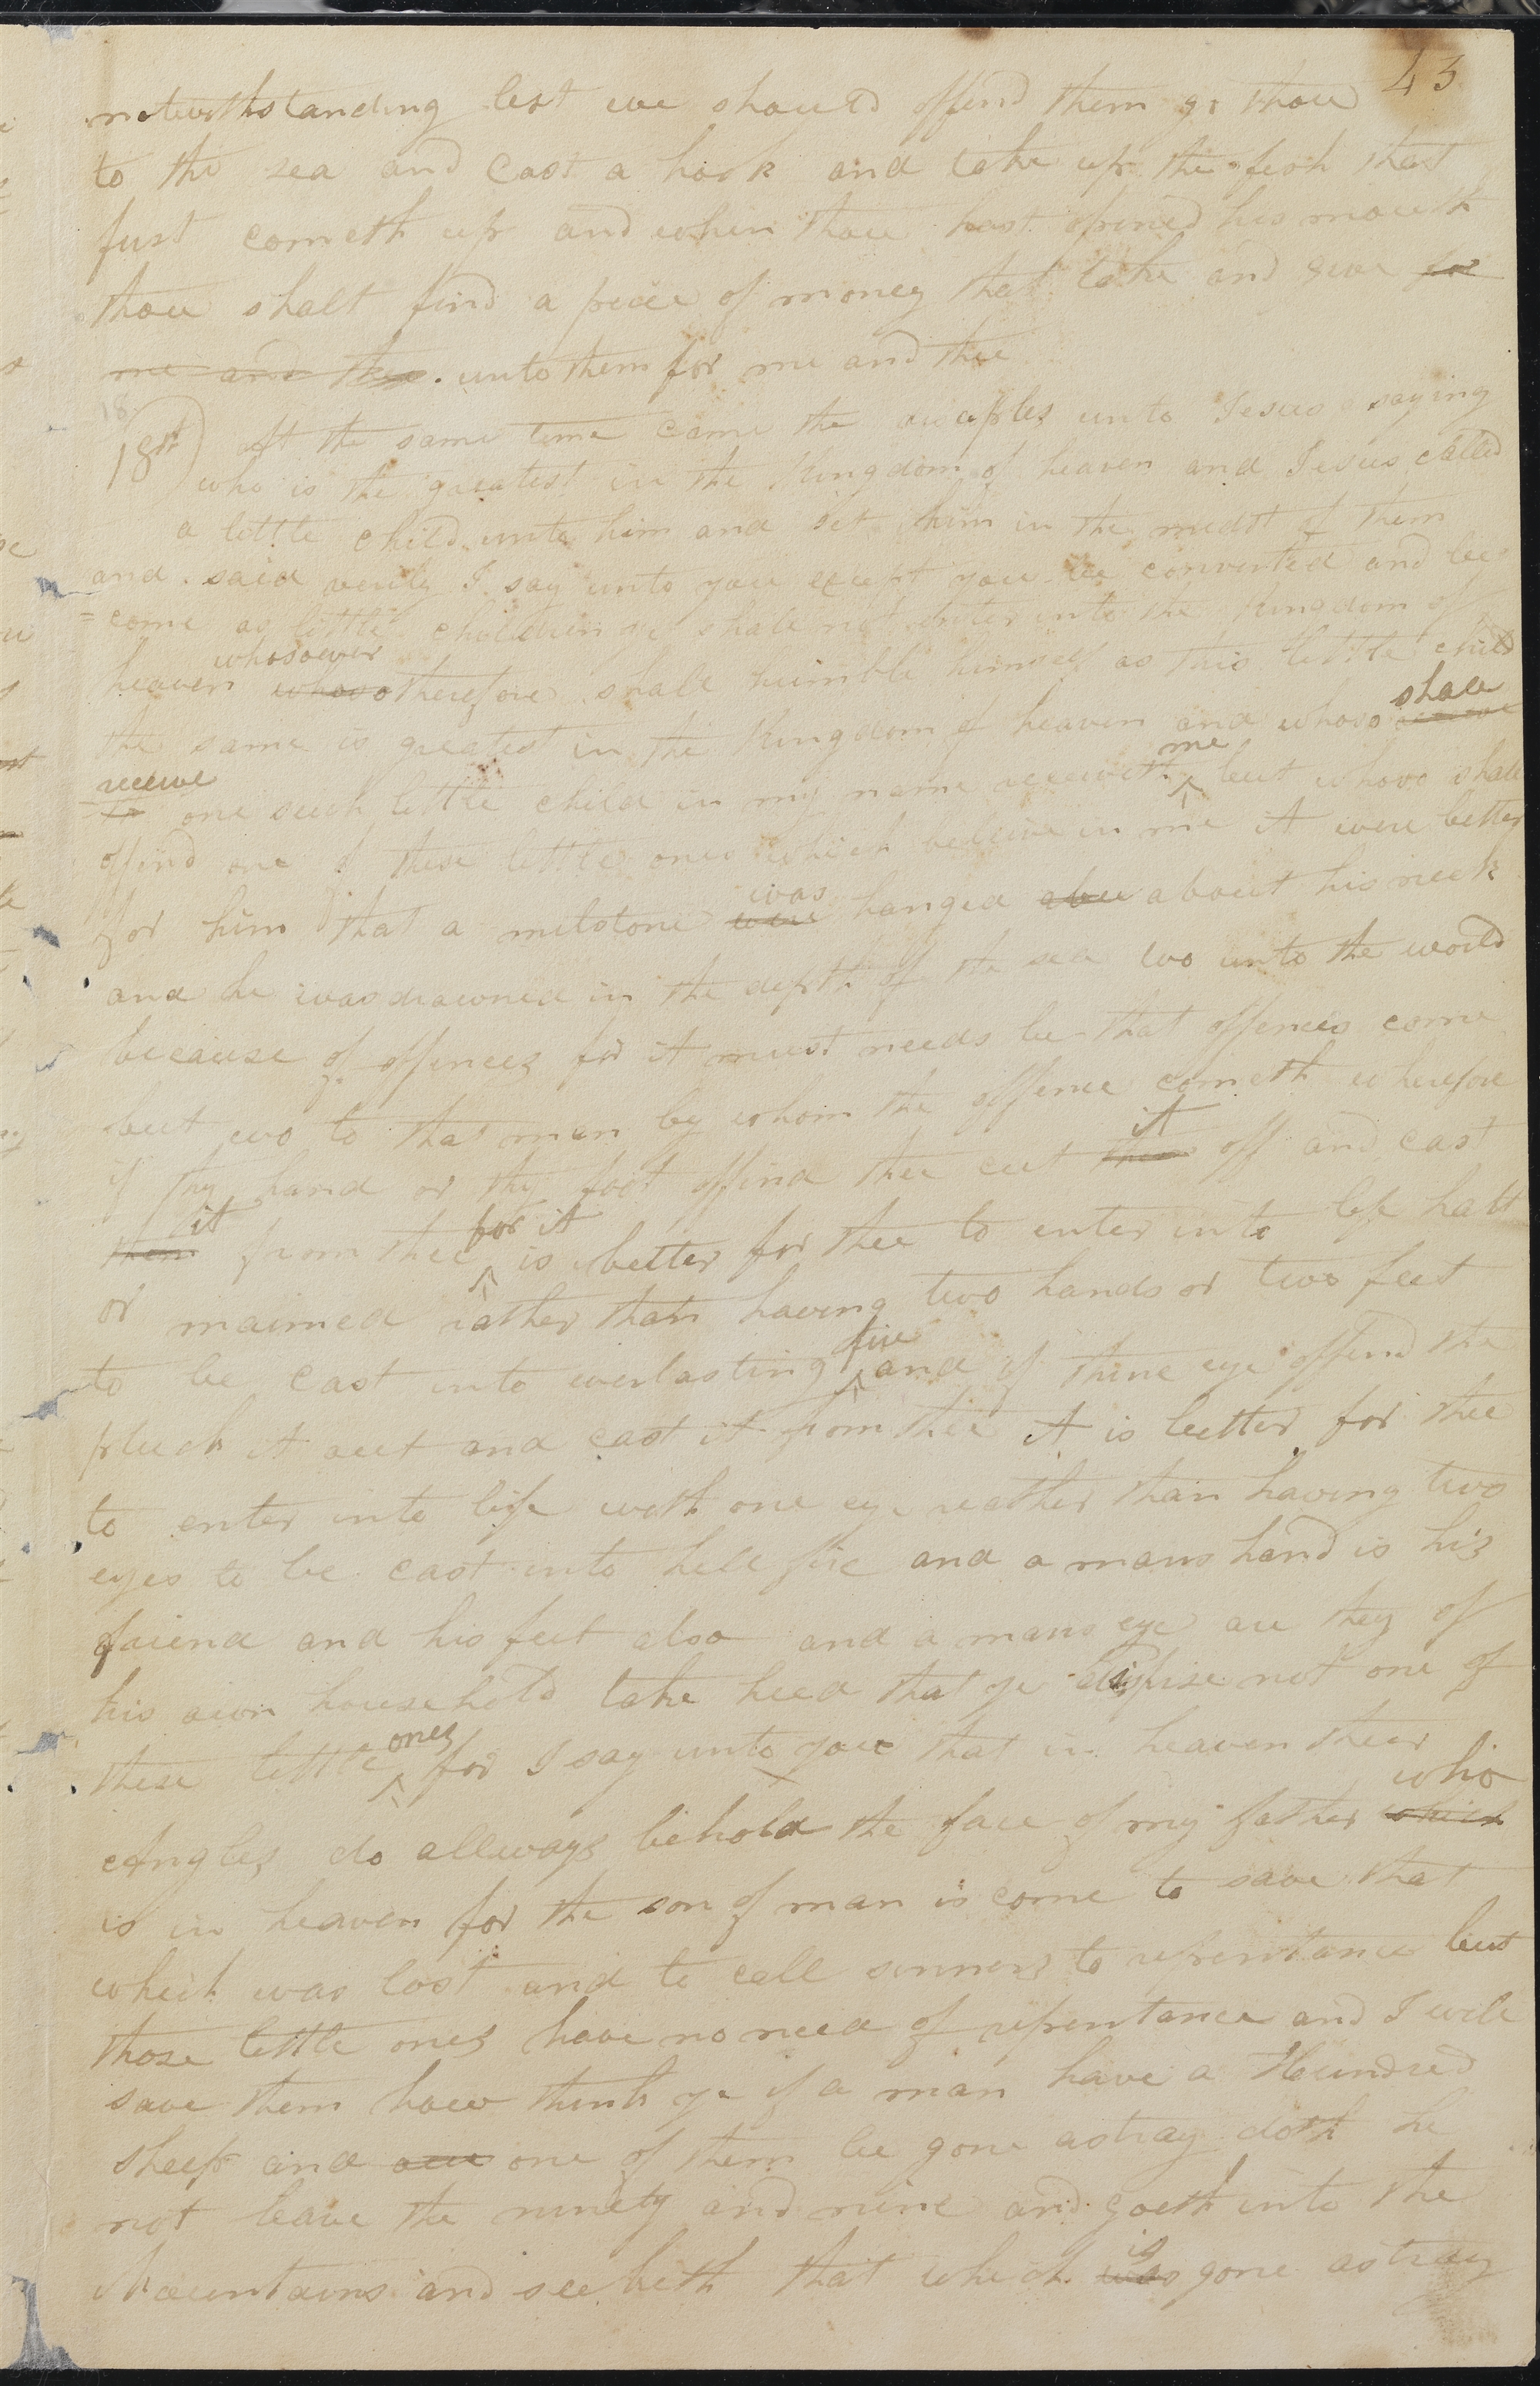 43
notwithstanding lest we should offend them go thou
to the sea and cast a hook and take up the fish that
furst cometh up and when thou hast opened his mouth
thou shalt find a piece of money that take and give for
me and thee. unto them for me and thee
18
18th) At the same time came the diciples unto Jesus saying
who is the greatest in the Kingdom of heaven and Jesus called
a little child unto him and set him in the midst of them
and said verily I say unto you except you be converted and be
=come as little children ye shall not enter into the Kingdom of
whosoever
heaven whoso therefore shall humble himself as this little child
shall
the same is greatest in the Kingdom of heaven and whoso
receive me
one such little child in my name receiveth ^ but whoso shall
offend one of these little ones which believe in me it were better
was
for him that a milstone were hanged abou about his neck
and he was drowned in the depth of the sea wo unto the world
because of offences for it must needs be that offences come
but wo to that man by whom the offence cometh wherefore
it
if thy hand or thy foot offend thee cut them off and cast
it for it
them from thee ^ is better for thee to enter into life halt
or maimed rather than having two hands or two feet
fire
to be cast into everlasting ^ and if thine eye offend the
pluck it out and cast it from thee it is better for thee
to enter into life with one eye reather than having two
eyes to be cast into hell fire and a mans hand is his
friend and his feet also and a mans eye are they of
his own household take heed that ye dispise not one of
ones
these little ^ for I say unto you that in heaven their
who
Angles do allways behold the face of my father which
is in heaven for the son of man is come to save that
which was lost and to call sinners to repentance but
those little ones have no need of repentance and I will
save them how think ye if a man have a Hundred
sheep and one of them be gone astray doth he
not leave the ninety and nine and goeth into the
is
Mountains and seeketh that which was gone astray